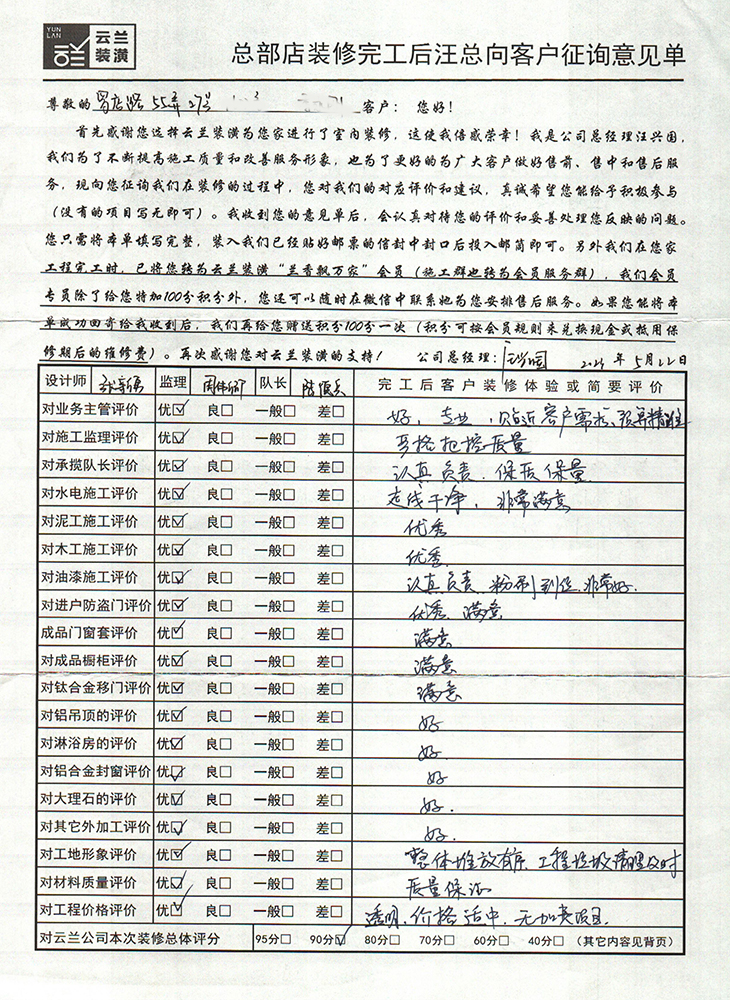 YUN LAN
云兰
装潢
总部店装修完工后汪总向客户征询意见单
尊敬的 55弄27号 客户： 您好！
首先感谢您选择云兰装潢为您家进行了室内装修，这使我倍感荣幸！我是公司总经理汪兴国，
我们为了不断提高施工质量和改善服务形象，也为了更好的为广大客户做好售前、售中和售后服
务，现向您征询我们在装修的过程中，您对我们的对应评价和建议，真诚希望您能给予积极参与
（没有的项目写无即可）。我收到您的意见单后，会认真对待您的评价和妥善处理您反映的问题。
您只需将本单填写完整，装入我们已经贴好邮票的信封中封口后投入邮筒即可。另外我们在您家
工程完工时，已将您转为云兰装潢“兰香飘万家”会员（施工群也转为会员服务群），我们会员
专员除了给您特加100分积分外，您还可以随时在微信中联系她为您安排售后服务。如果您能将本
单成功回寄给我收到后，我们再给您赠送积分100分一次（积分可按会员规则来兑换现金或抵用保
修期后的维修费）。再次感谢您对云兰装潢的支持！ 公司总经理：汪兴国 年 5月22日
设计师 监理 队长 完工后客户装修体验或简要评价
对业务主管评价 优☑ 良□ 一般□ 差□ 好，专业，贴近客户需求、
对施工监理评价 优☑ 良□ 一般□ 差□ 严格把控质量
对承揽队长评价 优☑ 良□ 一般□ 差□ 认真负责．保质保量
对水电施工评价 优☑ 良□ 一般□ 差□ 走线干净，非常满意
对泥工施工评价 优☑ 良□ 一般□ 差□ 优秀
对木工施工评价 优☑ 良□ 一般□ 差□ 优秀
对油漆施工评价 优☑ 良□ 一般□ 差□ 认真负责．粉刷到位．非常好．
对进户防盗门评价 优☑ 良□ 一般□ 差□ 优秀．满意
成品门窗套评价 优☑ 良□ 一般□ 差□ 满意
对成品橱柜评价 优☑ 良□ 一般□ 差□ 满意
对钛合金移门评价 优☑ 良□ 一般□ 差□ 满意
对铝吊顶的评价 优☑ 良□ 一般□ 差□ 好
对淋浴房的评价 优☑ 良□ 一般□ 差□ 好．
对铝合金封窗评价 优☑ 良□ 一般□ 差□ 好
对大理石的评价 优☑ 良□ 一般□ 差□ 好．
对其它外加工评价 优☑ 良□ 一般□ 差□ 好．
对工地形象评价 优☑ 良□ 一般□ 差□ 整体堆放有序．工程垃圾清理及时
对材料质量评价 优☑ 良□ 一般□ 差□ 质量保证
对工程价格评价 优☑ 良□ 一般□ 差□ 透明，价格适中．无加费项目．
对云兰公司本次装修总体评分 95分□ 90分☑ 80分□ 70分□ 60分□ 40分□ （其它内容见背页）